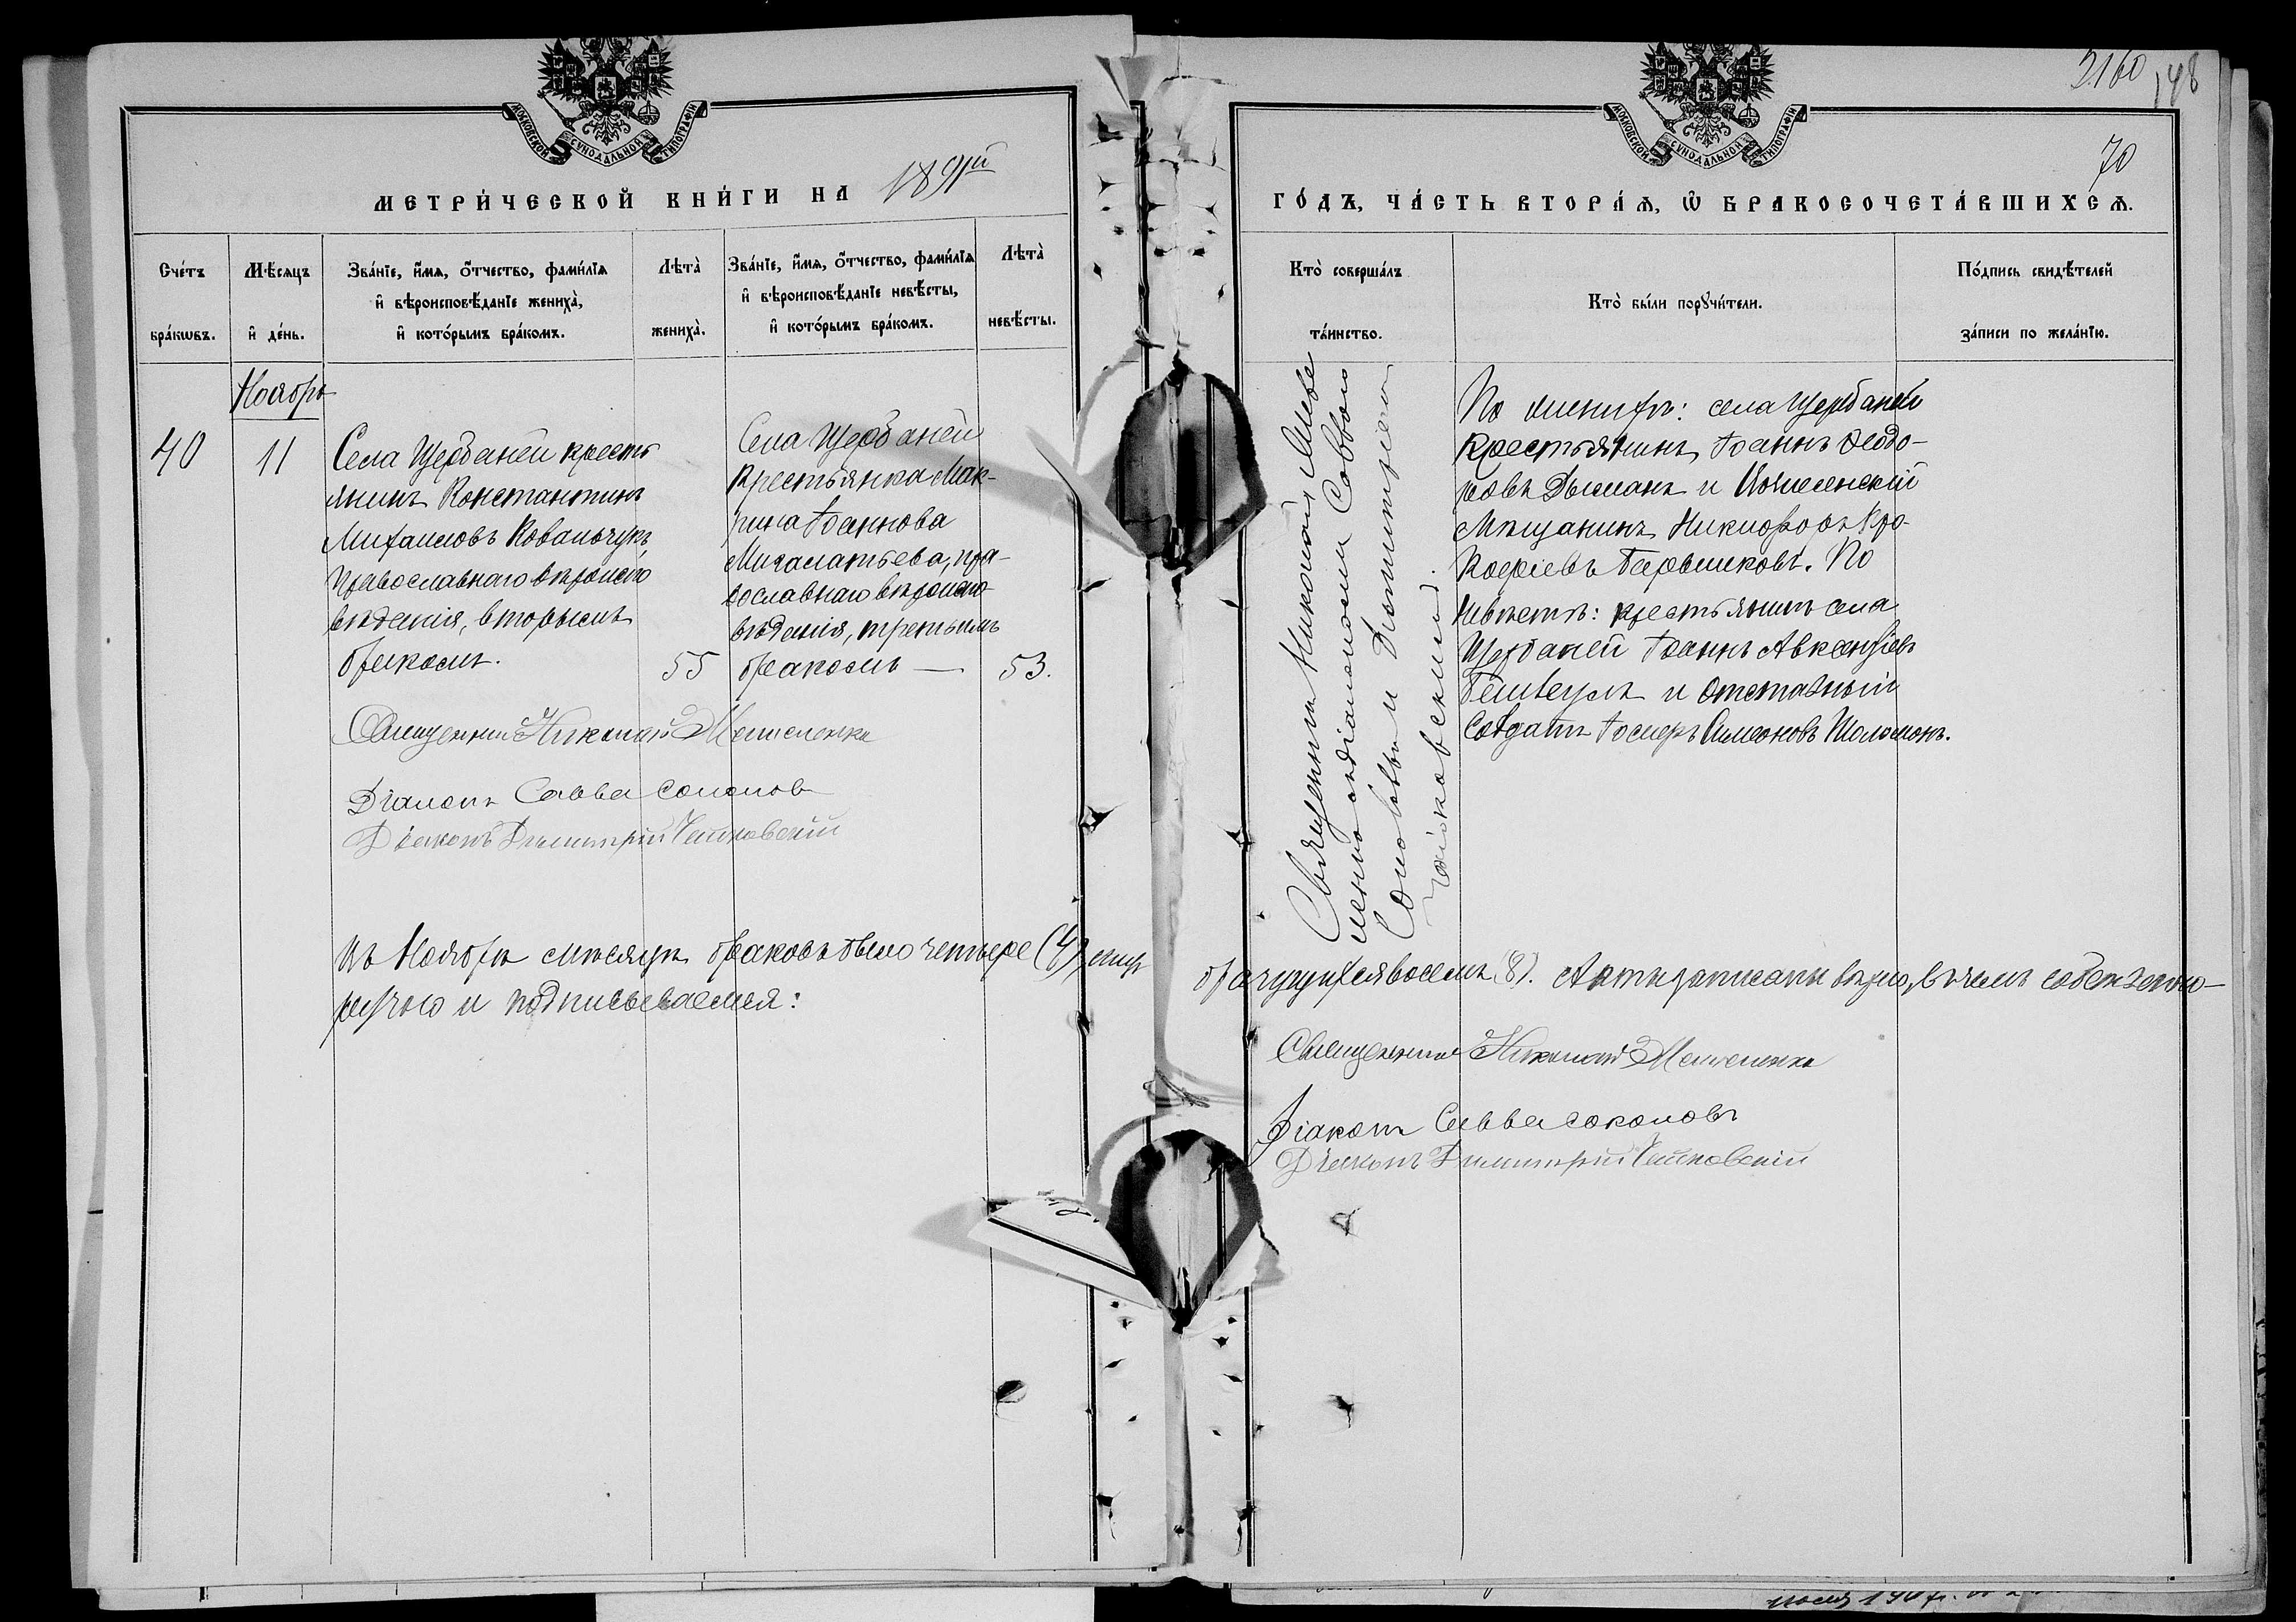 МОСКОВСКОЙ СѴНОДАЛЬНОЙ ТИПОГРАФІИ
МЕТРИ́ЧЕСКОЙ КНИ́ГИ НА 1891й
Сче́тъ бра́кѡвъ.
Мѣ́сяцъ и҆ де́нь.
Зва́нїе, и҆́мя, ѻ҆́тчество, фами́лїя
и҆ вѣроисповѣ́данїе жениха̀,
и҆ кото́рымъ бра́комъ.
Лѣта̀ жениха̀.
Зва́нїе, и҆́мя, ѻ҆́тчество, фами́лїя
и҆ вѣроисповѣ́данїе невѣ́сты,
и҆ кото́рымъ бра́комъ.
Лѣта̀ невѣ́сты.
Ноябрь
40
11
Села Щербаней кресть
янинъ Константинъ
Михаиловъ Ковальчукъ,
православнаго вѣроиспо
вѣданія, вторымъ
бракомъ.
55
Села Щербаней
крестьянка Мак-
рина Іоаннова
пра-
вославнаго вѣроиспо-
вѣданія, третьимъ
бракомъ —
53.
Священник Николай
Діаконъ Савва Соколов
Діаконъ Димитрій Чайковскій
Въ Ноябрѣ мѣсяцѣ браковъ было четыре (4),
ручно и подписываемся:
МОСКОВСКОЙ СѴНОДАЛЬНОЙ ТИПОГРАФІИ
2160
148
70
ГО́ДЪ, ЧА́СТЬ ВТОРА́Я, Ѡ҆ БРАКОСОЧЕТА́ВШИХСЯ.
Кто̀ соверша́лъ
та́инство.
Кто̀ бы́ли порꙋчи́тели.
По́дпись свидѣ́телей
за́писи по жела́нїю.
Священникъ Николай
съ діакономъ Саввою
Соколовым и Димитріем
Чайковскимъ.
По женихѣ: села Щербаней
крестьянинъ Іоаннъ Ѳеодо-
ровъ Дыманъ и
мѣщанинъ Никифоръ Про-
кофіевъ По
невѣстѣ: крестьянинъ села
Щербаней Іоаннъ Авксентіевъ
и отставный
солдатъ Іосифъ Симеоновъ Шоломонъ.
брачущихся восемь (8). Акты записаны вѣрно, въ чемъ собственно-
Священник Николай
Діаконъ Савва Соколовъ
Діаконъ Димитрій Чайковскій